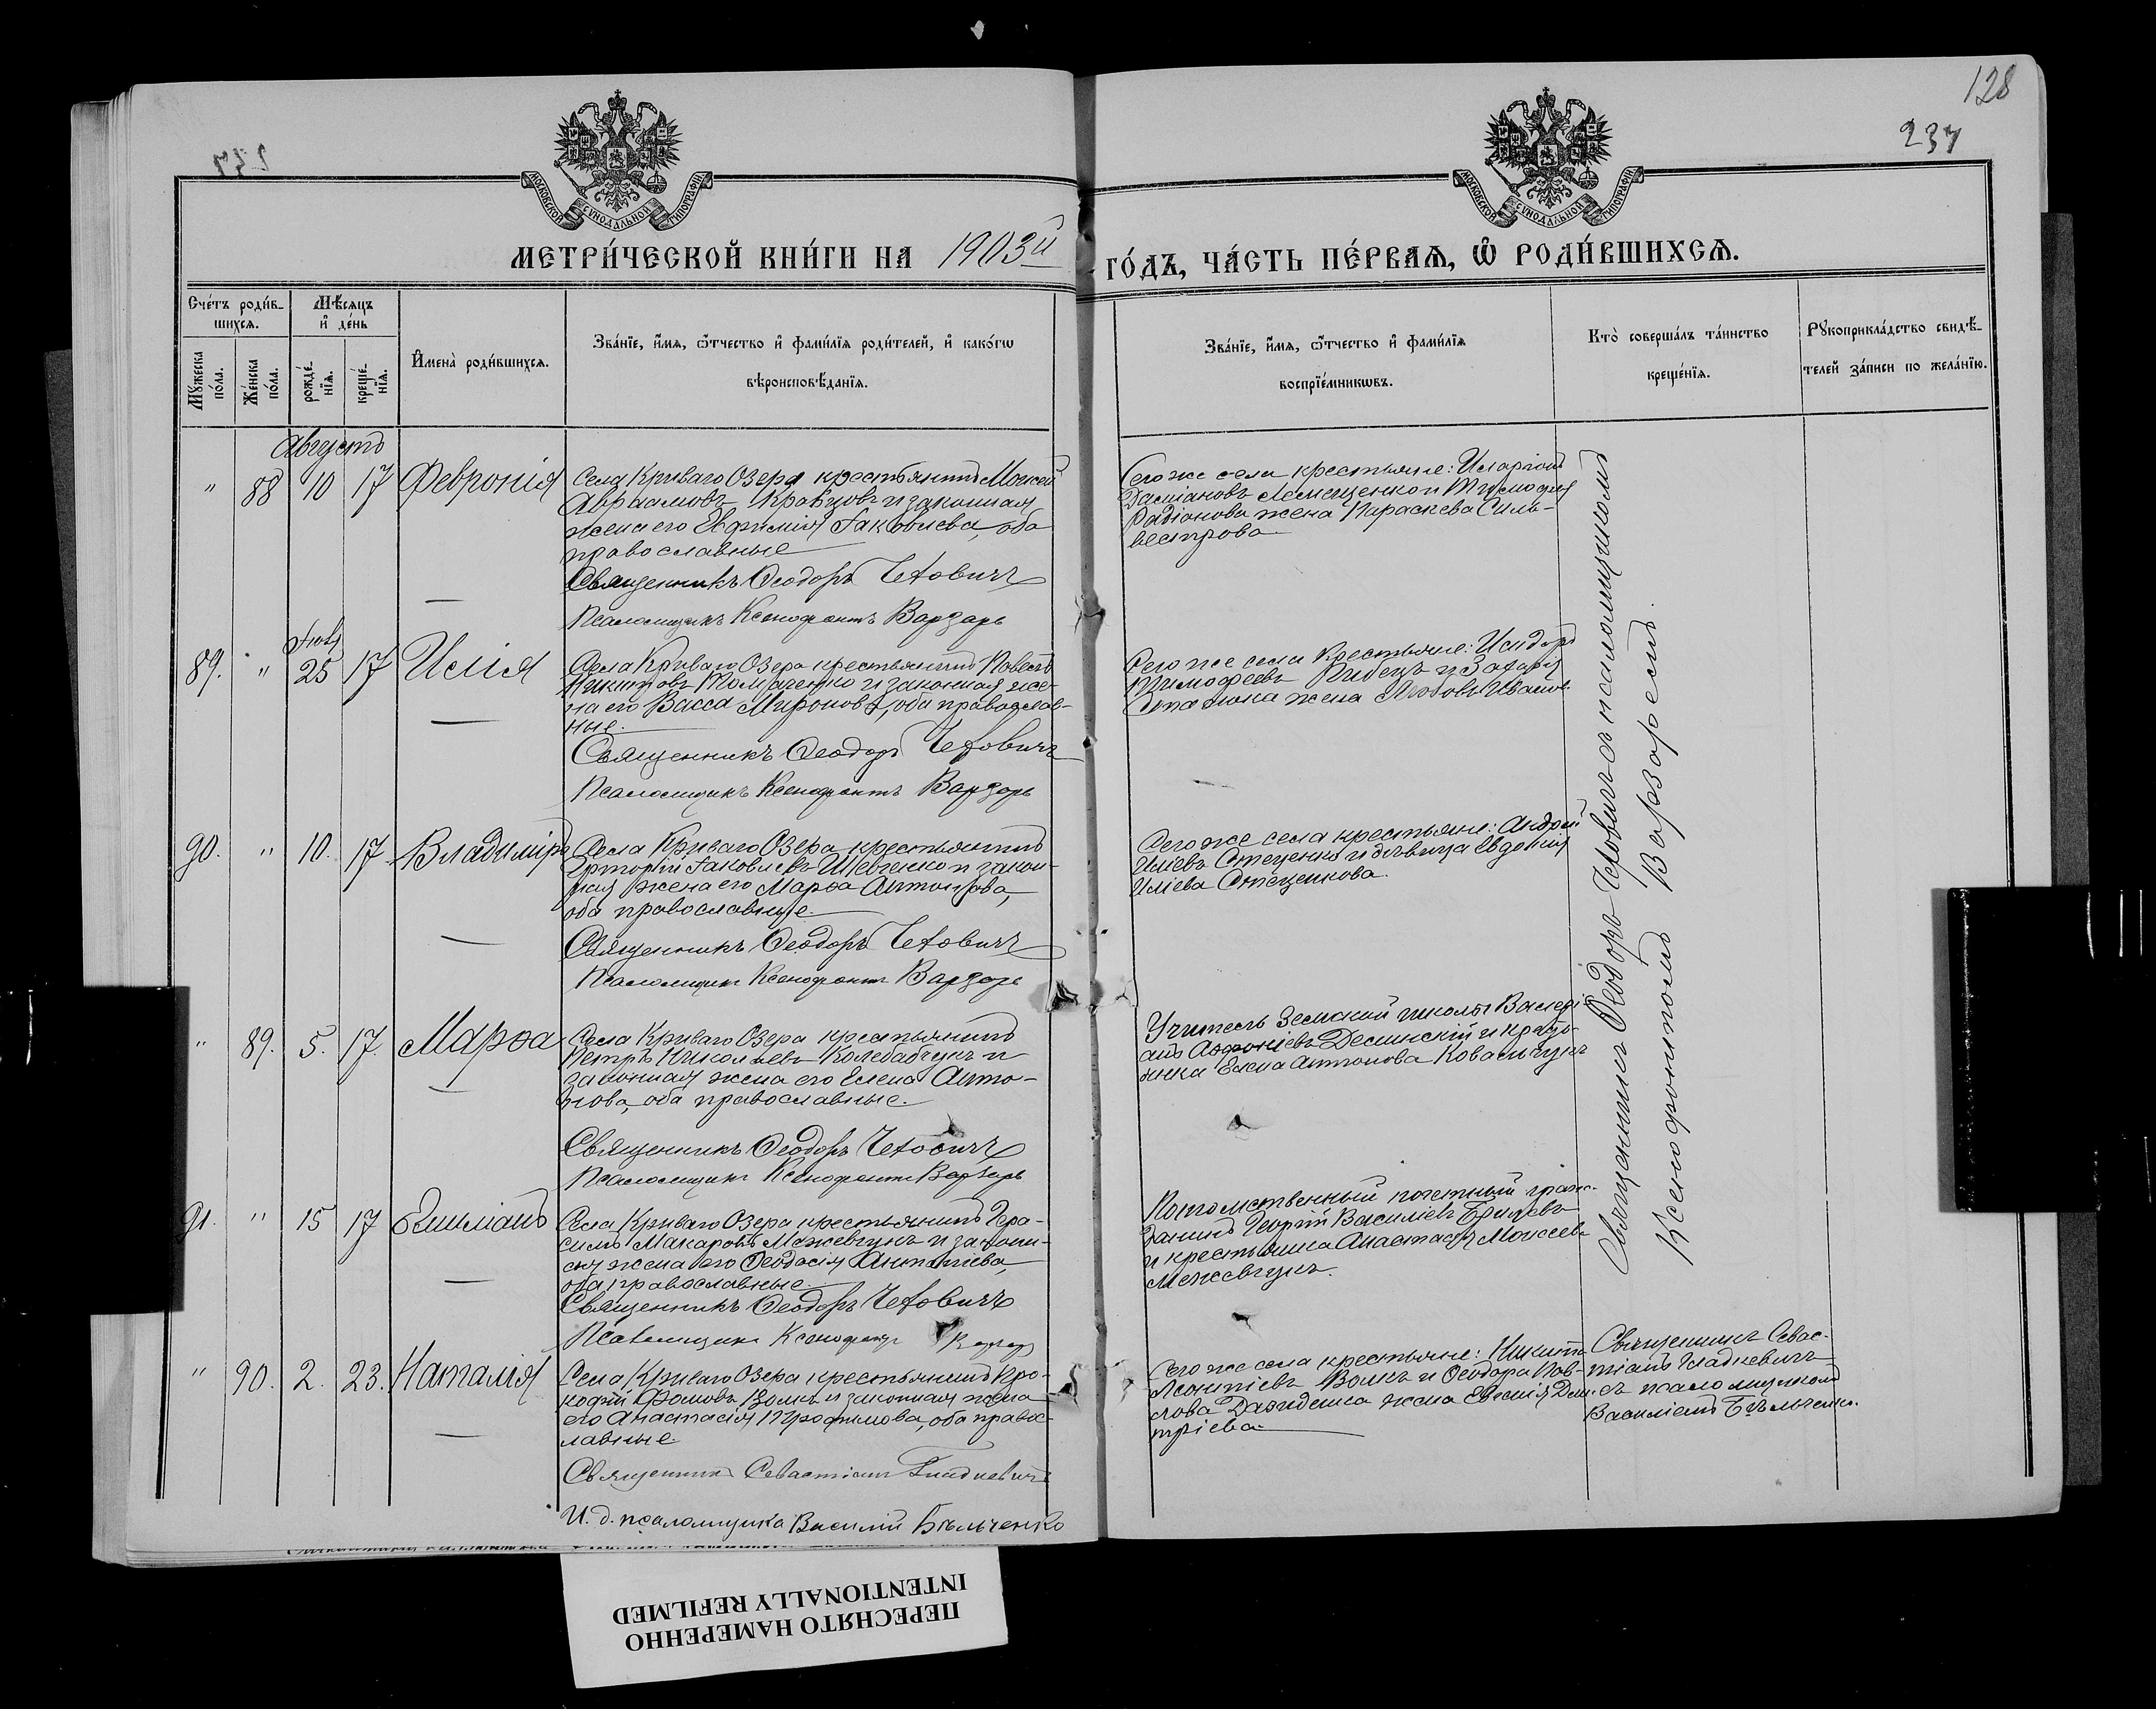 128
237
МОСКОВСКОЙ СѴНОДАЛЬНОЙ ТИПОГРАФІИ
МОСКОВСКОЙ СѴНОДАЛЬНОЙ ТИПОГРАФІИ
МЕТРИ́ЧЕСКОЙ КНИ́ГИ НА 1903й
ГО́ДЪ, ЧА́СТЬ ПЕ́РВАѦ, Ѡ҆ РОДИ́ВШИХСѦ.
Сче́тъ роди́в-
шихсѧ.
Мѣ́сяцъ
и҆ де́нь
Мꙋ́жеска
по́ла.
Же́нска
по́ла.
рожде́-
нїѧ.
креще́-
нїѧ.
И҆мена̀ роди́вшихсѧ.
Зва́нїе, и҆́мѧ, ѻ҆́тчество и҆ фами́лїѧ роди́телей, и҆ како́гѡ
вѣроисповѣ́данїѧ.
Зва́нїе, и҆́мѧ, ѻ҆́тчество и҆ фами́лїѧ
воспрїе́мникѡвъ.
Кто̀ соверша́лъ та́инство
креще́нїѧ.
Рꙋкоприкла́дство свидѣ́-
телей за́писи по жела́нїю.
Августъ
" 88 10 17 Февронія
Села Криваго Озера крестьянинъ Моисей
Авраамовъ Кравцовъ и законная
жена его Евфимія Іаковлева, оба
православные
Священникъ Ѳеодоръ Чехович
Псаломщикъ Ксенофонтъ Варзарь
Сего же села крестьяне: Иларіонъ
Даміановъ Лемещенко и Тимофея
Радіонова жена Параскева Силь-
вестрова
Іюля
89. " 25 17 Илія
Села Криваго Озера крестьянинъ Павелъ
Никитовъ Толмаченко и законная же-
на его Васса Миронова, оба православ-
ные.
Священникъ Ѳеодоръ Чехович
Псаломщикъ Ксенофонтъ Варзарь
Сего же села крестьяне: Исидоръ
Тимофеевъ и Захарія
жена Любовь Иванов.
90. " 10. 17. Владиміръ
Села Криваго Озера крестьянинъ
Іаковлевъ Шевченко и закон-
ная жена его Марѳа Антонова,
оба православные.
Священникъ Ѳеодоръ Чехович
Псаломщикъ Ксенофонтъ Варзарь
Сего же села крестьяне: Андрей
Иліевъ Стеценко и дѣвица Евдокія
Иліева Стеценкова.
" 89. 5. 17. Марѳа
Села Криваго Озера крестьянинъ
Петръ Николаевъ Колебабчукъ и
законная жена его Елена Анто-
нова, оба православные.
Священникъ Ѳеодоръ Чехович
Псаломщикъ Ксенофонтъ Варзарь
Учитель Земской школы Валері-
анъ Деминскій и крестья-
нка Елена Антонова Ковальчукъ
91. " 15 17 Емиліанъ
Села Криваго Озера крестьянинъ Гера-
симъ Макаровъ Межевчукъ и закон-
ная жена его Ѳеодосія Антоніева,
оба православные.
Священникъ Ѳеодоръ Чехович
Псаломщикъ Ксенофонтъ Варзарь
Потомственный почетный граж-
данинъ Георгій Василіевъ
и крестьянка Анастасія Моисеева
Межевчукъ.
Священникъ Ѳеодоръ Чеховичъ съ псаломщикомъ
Ксенофонтомъ Варзаремъ.
" 90. 2. 23. Наталія
Села Криваго Озера крестьянинъ Про-
кофій Фомовъ Волкъ и законная жена
его Анастасія Трофимова, оба правос-
лавные.
Священникъ Севастіанъ Гладкевичъ
И. д. псаломщика Василій Бѣльченко
Сего же села крестьяне: Никита
Леонтіевъ Волкъ и Ѳеодора Пав-
лова Давиденка жена Евгенія Дми-
тріева
Священникъ Севас-
тіанъ Гладкевичъ
съ псаломщикомъ
Василіемъ Бѣльченко.
ПЕРЕСНЯТО НАМЕРЕННО
INTENTIONALLY REFILMED